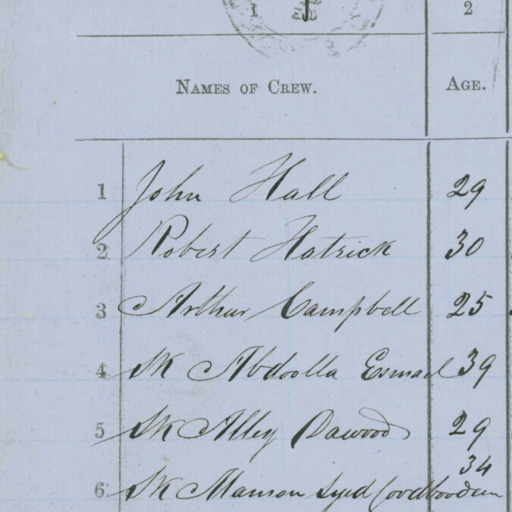 1 2
NAMES OF CREW. AGE.
1 John Hall 29
2 Robert Hatrick 30
3 Arthur Campbell 25
4 SK Abdoolla Esmael 39
5 SK Alley Dawood 29
6 SK Manson Syed 34